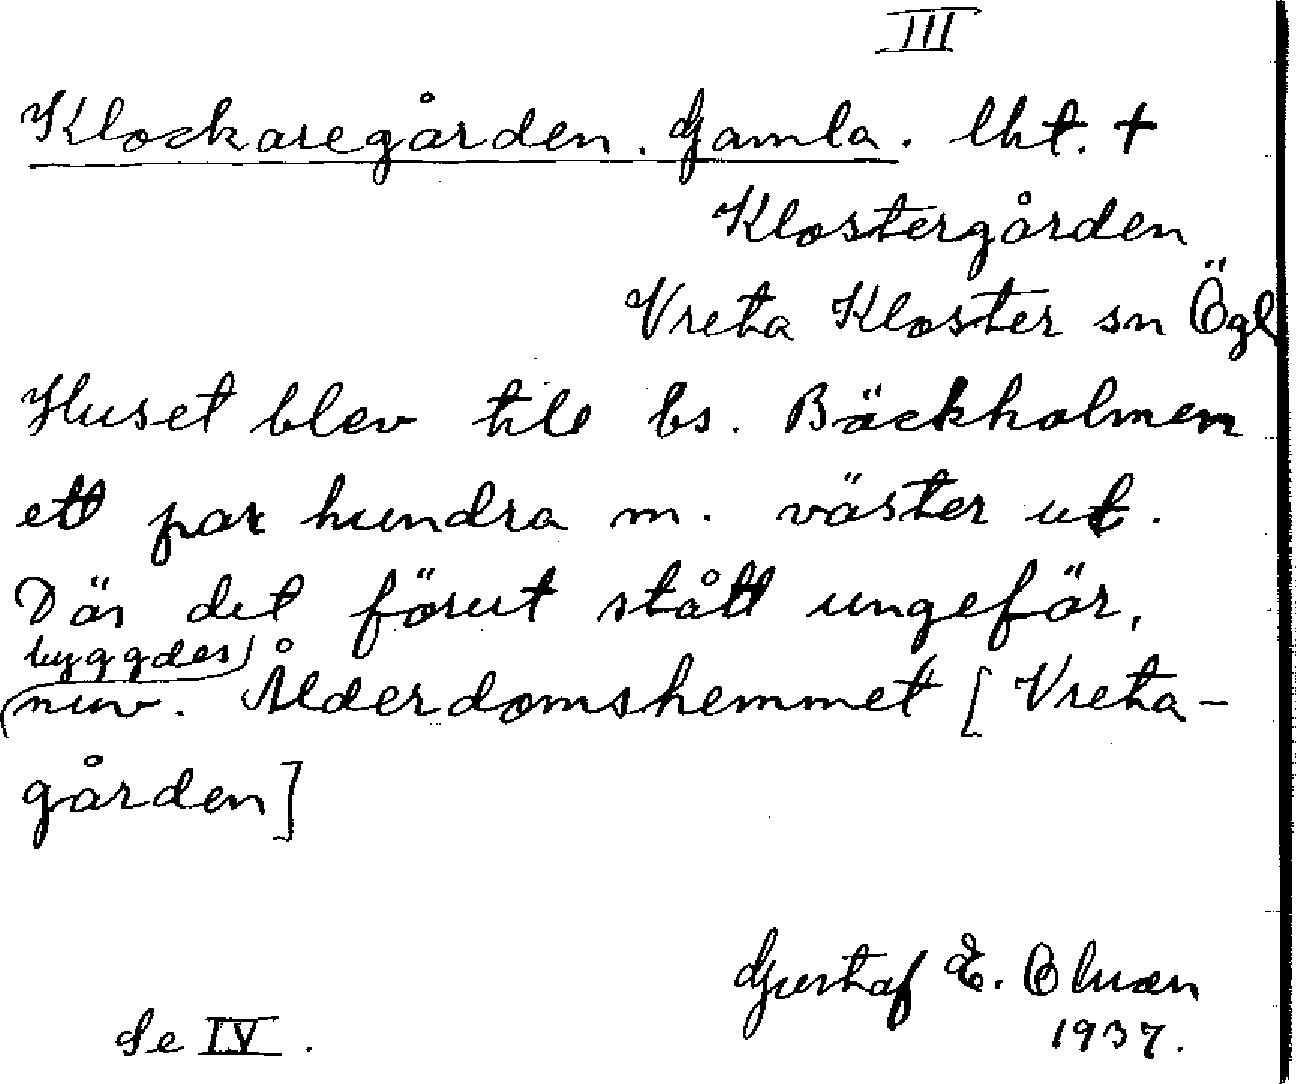 III
Klockaregården. Gamla. lht. +
Klostergården
Vreta Kloster sn Ögl
Huset blev till bs. Bäckholmen
ett par hundra m. väster ut.
Där det förut stått ungefär,
byggdes
nuv. Ålderdomshemmet [Vreta-
gården]
Gustaf E.
1937.
Se IV.